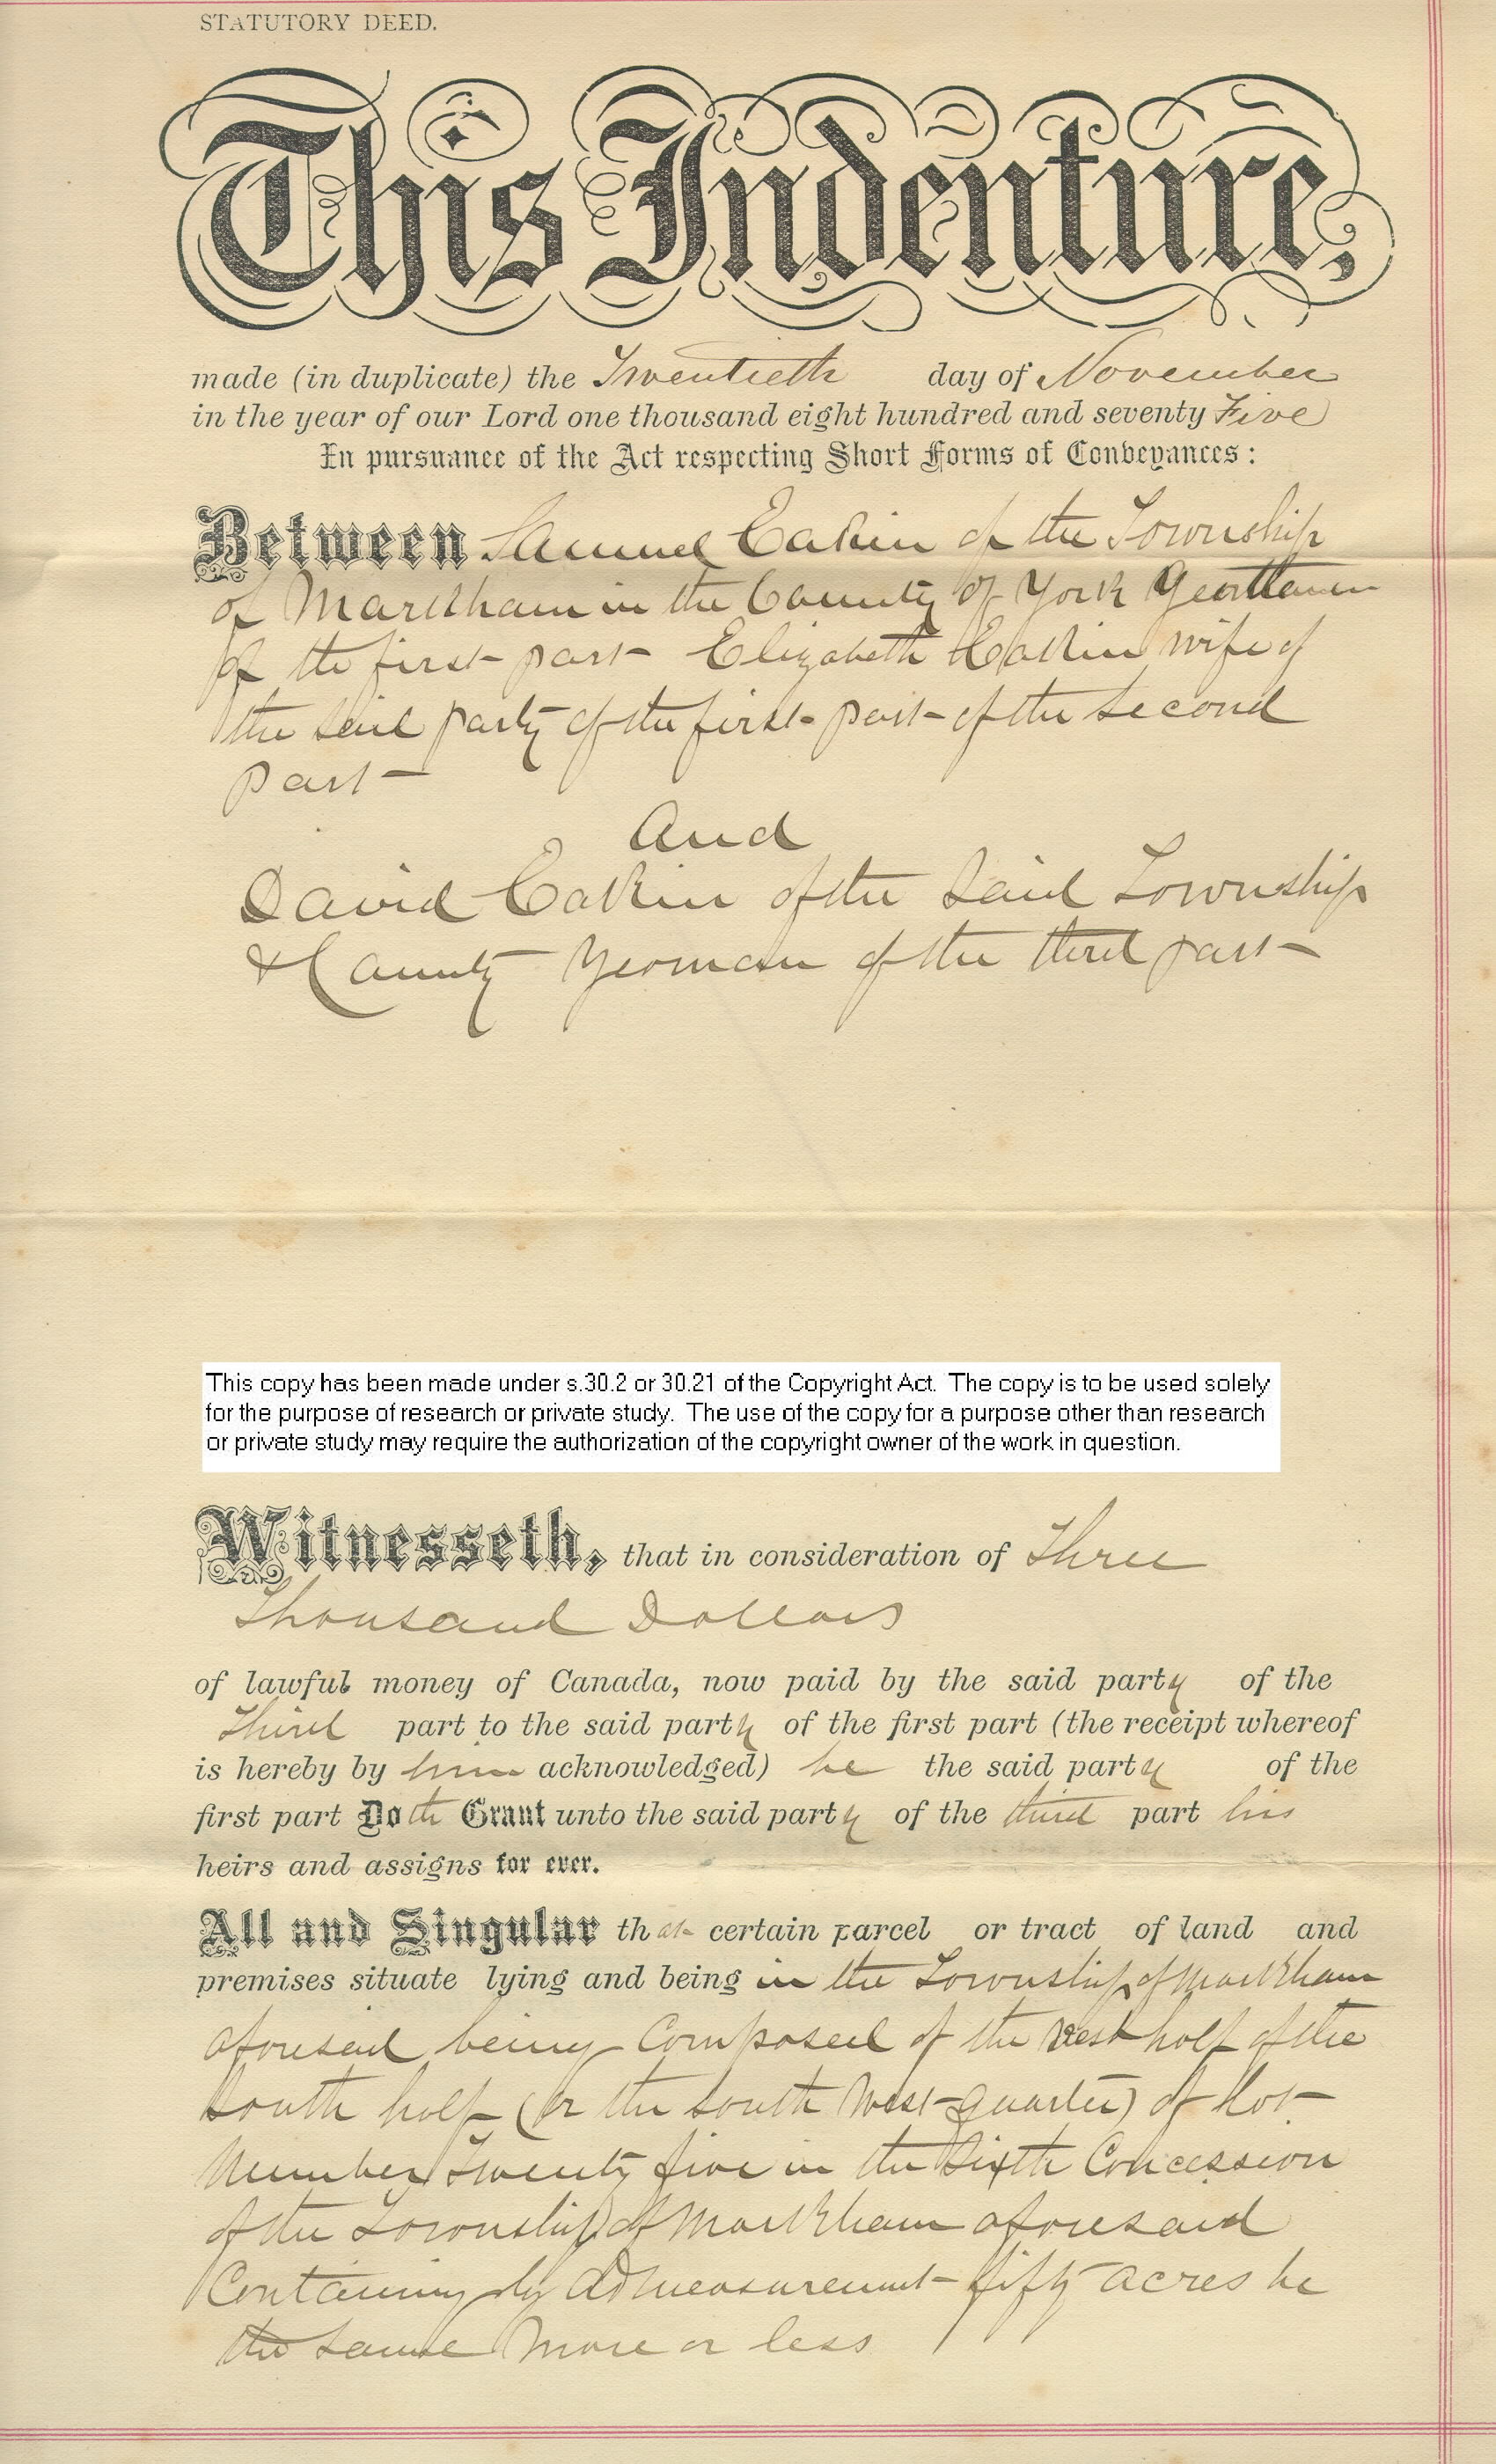 STATUTORY DEED.
This Indenture,
made (in duplicate) the Twentieth day of November
in the year of our Lord one thousand eight hundred and seventy Five
In pursuance of the Act respecting Short Forms of Conveyances:
Between Samuel Eakin of the Township
of Markham in the County of York Gentleman
of the first part Elizabeth Eakin wife of
the said party of the first part of the second
part
And
David Eakin of the said Township
& County Yeoman of the third part
This copy has been made under s.30.2 or 30.21 of the Copyright Act. The copy is to be used solely
for the purpose of research or private study. The use of the copy for a purpose other than research
or private study may require the authorization of the copyright owner of the work in question.
Witnesseth, that in consideration of Three
Thousand Dollars
of lawful money of Canada, now paid by the said party of the
Third part to the said party of the first part (the receipt whereof
is hereby by him acknowledged) he the said party of the
first part Doth Grant unto the said party of the third part his
heirs and assigns for ever.
All and Singular that certain parcel or tract of land and
premises situate lying and being in the Township of Markham
aforesaid being composed of the West half of the
South half (or the South West quarter) of Lot
Number Twenty five in the Sixth Concession
of the Township of Markham aforesaid
Containing by admeasurement fifty acres be
the same more or less